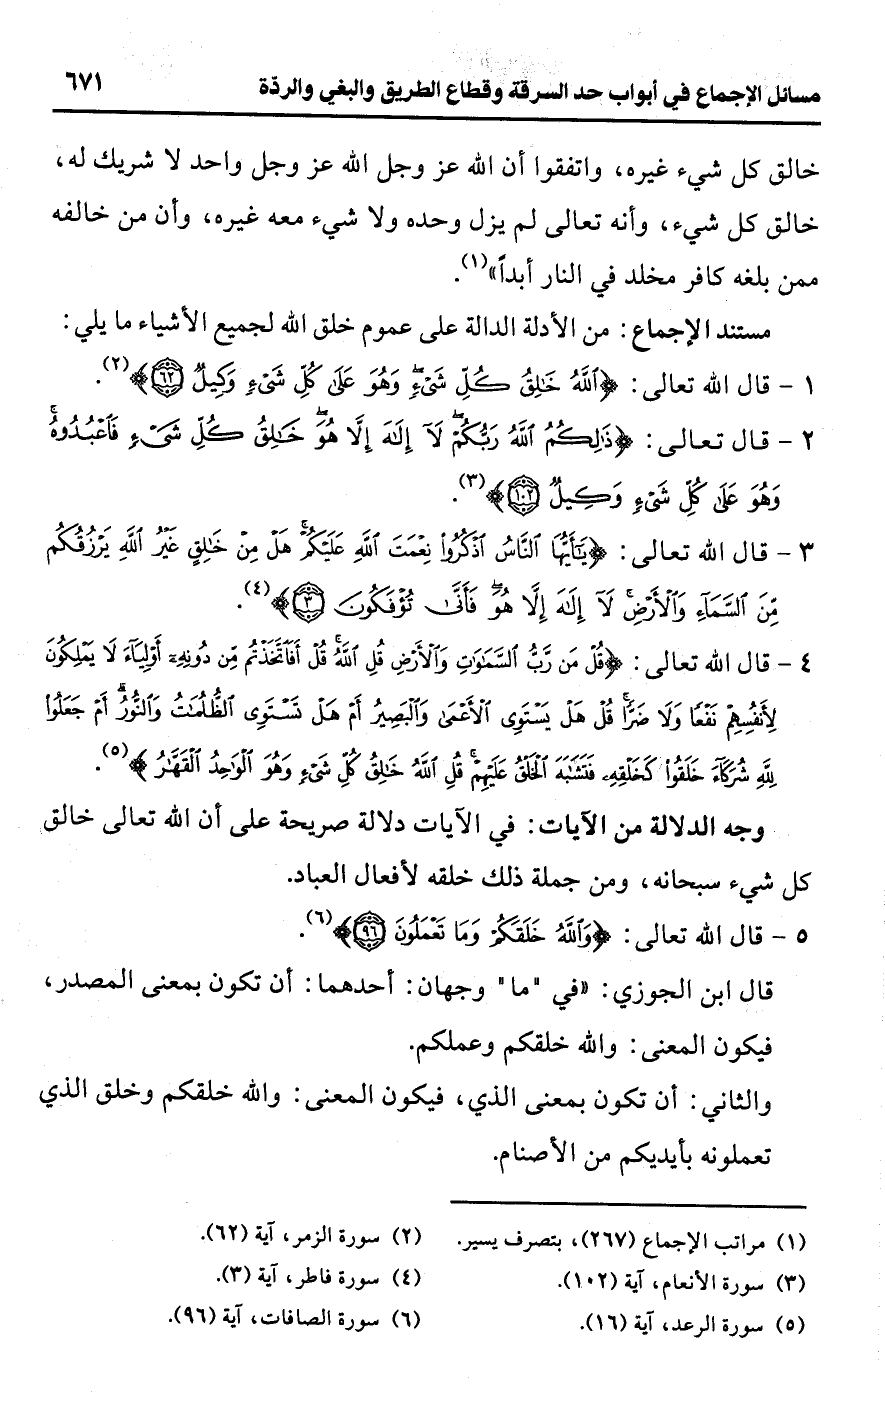 مسائل الإجماع في أبواب حد السرقة وقطاع الطريق والبغي والردّة ٦٧١
خالق كل شيء غيره، واتفقوا أن الله عز وجل الله عز وجل واحد لا شريك له،
خالق كل شيء، وأنه تعالى لم يزل وحده ولا شيء معه غيره، وأن من خالفه
ممن بلغه كافر مخلد في النار أبداً»(١).
مستند الإجماع: من الأدلة الدالة على عموم خلق الله لجميع الأشياء ما يلي:
١ - قال الله تعالى: ﴿ٱللَّهُ خَٰلِقُ كُلِّ شَيْءٖۖ وَهُوَ عَلَىٰ كُلِّ شَيْءٖ وَكِيلٞ ٦٢﴾(٢).
٢ - قال تعالى: ﴿ذَٰلِكُمُ ٱللَّهُ رَبُّكُمۡۖ لَآ إِلَٰهَ إِلَّا هُوَۖ خَٰلِقُ كُلِّ شَيْءٖ فَٱعۡبُدُوهُۚ
وَهُوَ عَلَىٰ كُلِّ شَيْءٖ وَكِيلٞ ١٠٢﴾(٣).
٣ - قال الله تعالى: ﴿يَٰٓأَيُّهَا ٱلنَّاسُ ٱذۡكُرُواْ نِعۡمَتَ ٱللَّهِ عَلَيۡكُمۡۚ هَلۡ مِنۡ خَٰلِقٍ غَيۡرُ ٱللَّهِ يَرۡزُقُكُم
مِّنَ ٱلسَّمَآءِ وَٱلۡأَرۡضِۚ لَآ إِلَٰهَ إِلَّا هُوَۖ فَأَنَّىٰ تُؤۡفَكُونَ ٣﴾(٤).
٤ - قال الله تعالى: ﴿قُلۡ مَن رَّبُّ ٱلسَّمَٰوَٰتِ وَٱلۡأَرۡضِ قُلِ ٱللَّهُۚ قُلۡ أَفَٱتَّخَذۡتُم مِّن دُونِهِۦٓ أَوۡلِيَآءَ لَا يَمۡلِكُونَ
لِأَنفُسِهِمۡ نَفۡعٗا وَلَا ضَرّٗاۚ قُلۡ هَلۡ يَسۡتَوِي ٱلۡأَعۡمَىٰ وَٱلۡبَصِيرُ أَمۡ هَلۡ تَسۡتَوِي ٱلظُّلُمَٰتُ وَٱلنُّورُۗ أَمۡ جَعَلُواْ
لِلَّهِ شُرَكَآءَ خَلَقُواْ كَخَلۡقِهِۦ فَتَشَٰبَهَ ٱلۡخَلۡقُ عَلَيۡهِمۡۚ قُلِ ٱللَّهُ خَٰلِقُ كُلِّ شَيْءٖ وَهُوَ ٱلۡوَٰحِدُ ٱلۡقَهَّٰرُ﴾(٥).
وجه الدلالة من الآيات: في الآيات دلالة صريحة على أن الله تعالى خالق
كل شيء سبحانه، ومن جملة ذلك خلقه لأفعال العباد.
٥ - قال الله تعالى: ﴿وَٱللَّهُ خَلَقَكُمۡ وَمَا تَعۡمَلُونَ ٩٦﴾(٦).
قال ابن الجوزي: «في "ما" وجهان: أحدهما: أن تكون بمعنى المصدر،
فيكون المعنى: والله خلقكم وعملكم.
والثاني: أن تكون بمعنى الذي، فيكون المعنى: والله خلقكم وخلق الذي
تعملونه بأيديكم من الأصنام.
(١) مراتب الإجماع (٢٦٧)، بتصرف يسير. (٢) سورة الزمر، آية (٦٢).
(٣) سورة الأنعام، آية (١٠٢). (٤) سورة فاطر، آية (٣).
(٥) سورة الرعد، آية (١٦). (٦) سورة الصافات، آية (٩٦).